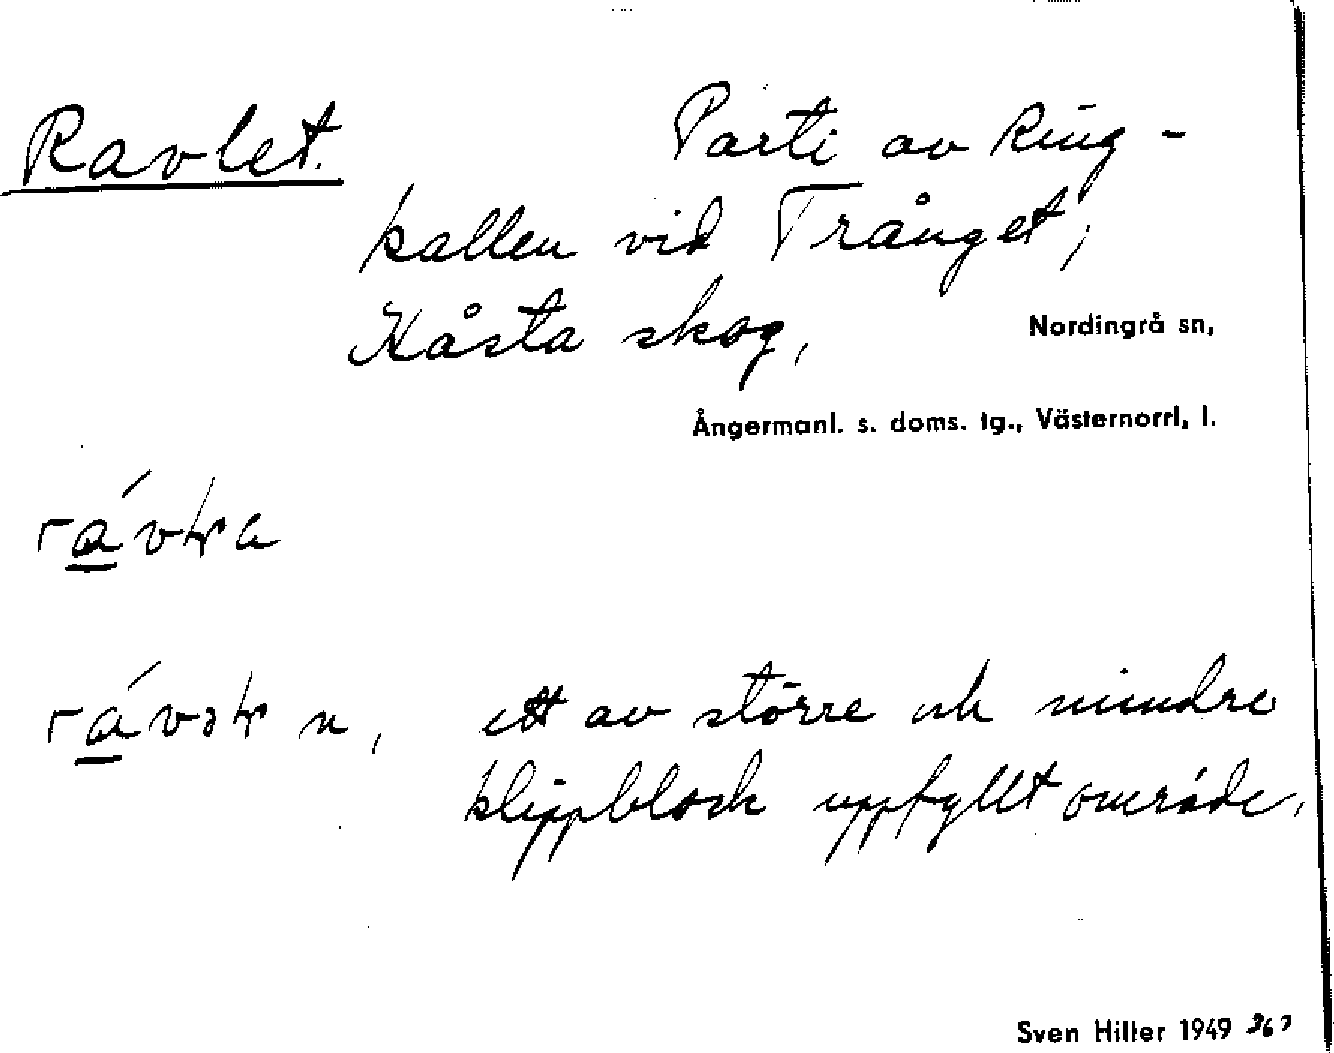 Ravlet. Parti av Ring-
kallen vid Trånget,
Kåsta skog, Nordingrå sn,
Ångermanl. s. doms. tg., Västernorrl. l.
n, ett av större och mindre
klippblock uppfyllt område.
Sven Hiller 1949